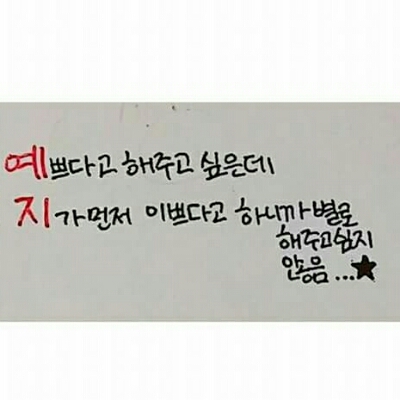 예쁘다고 해주고 싶은데
지가먼저 이쁘다고 하니까 별로
해주고싶지
않음...★